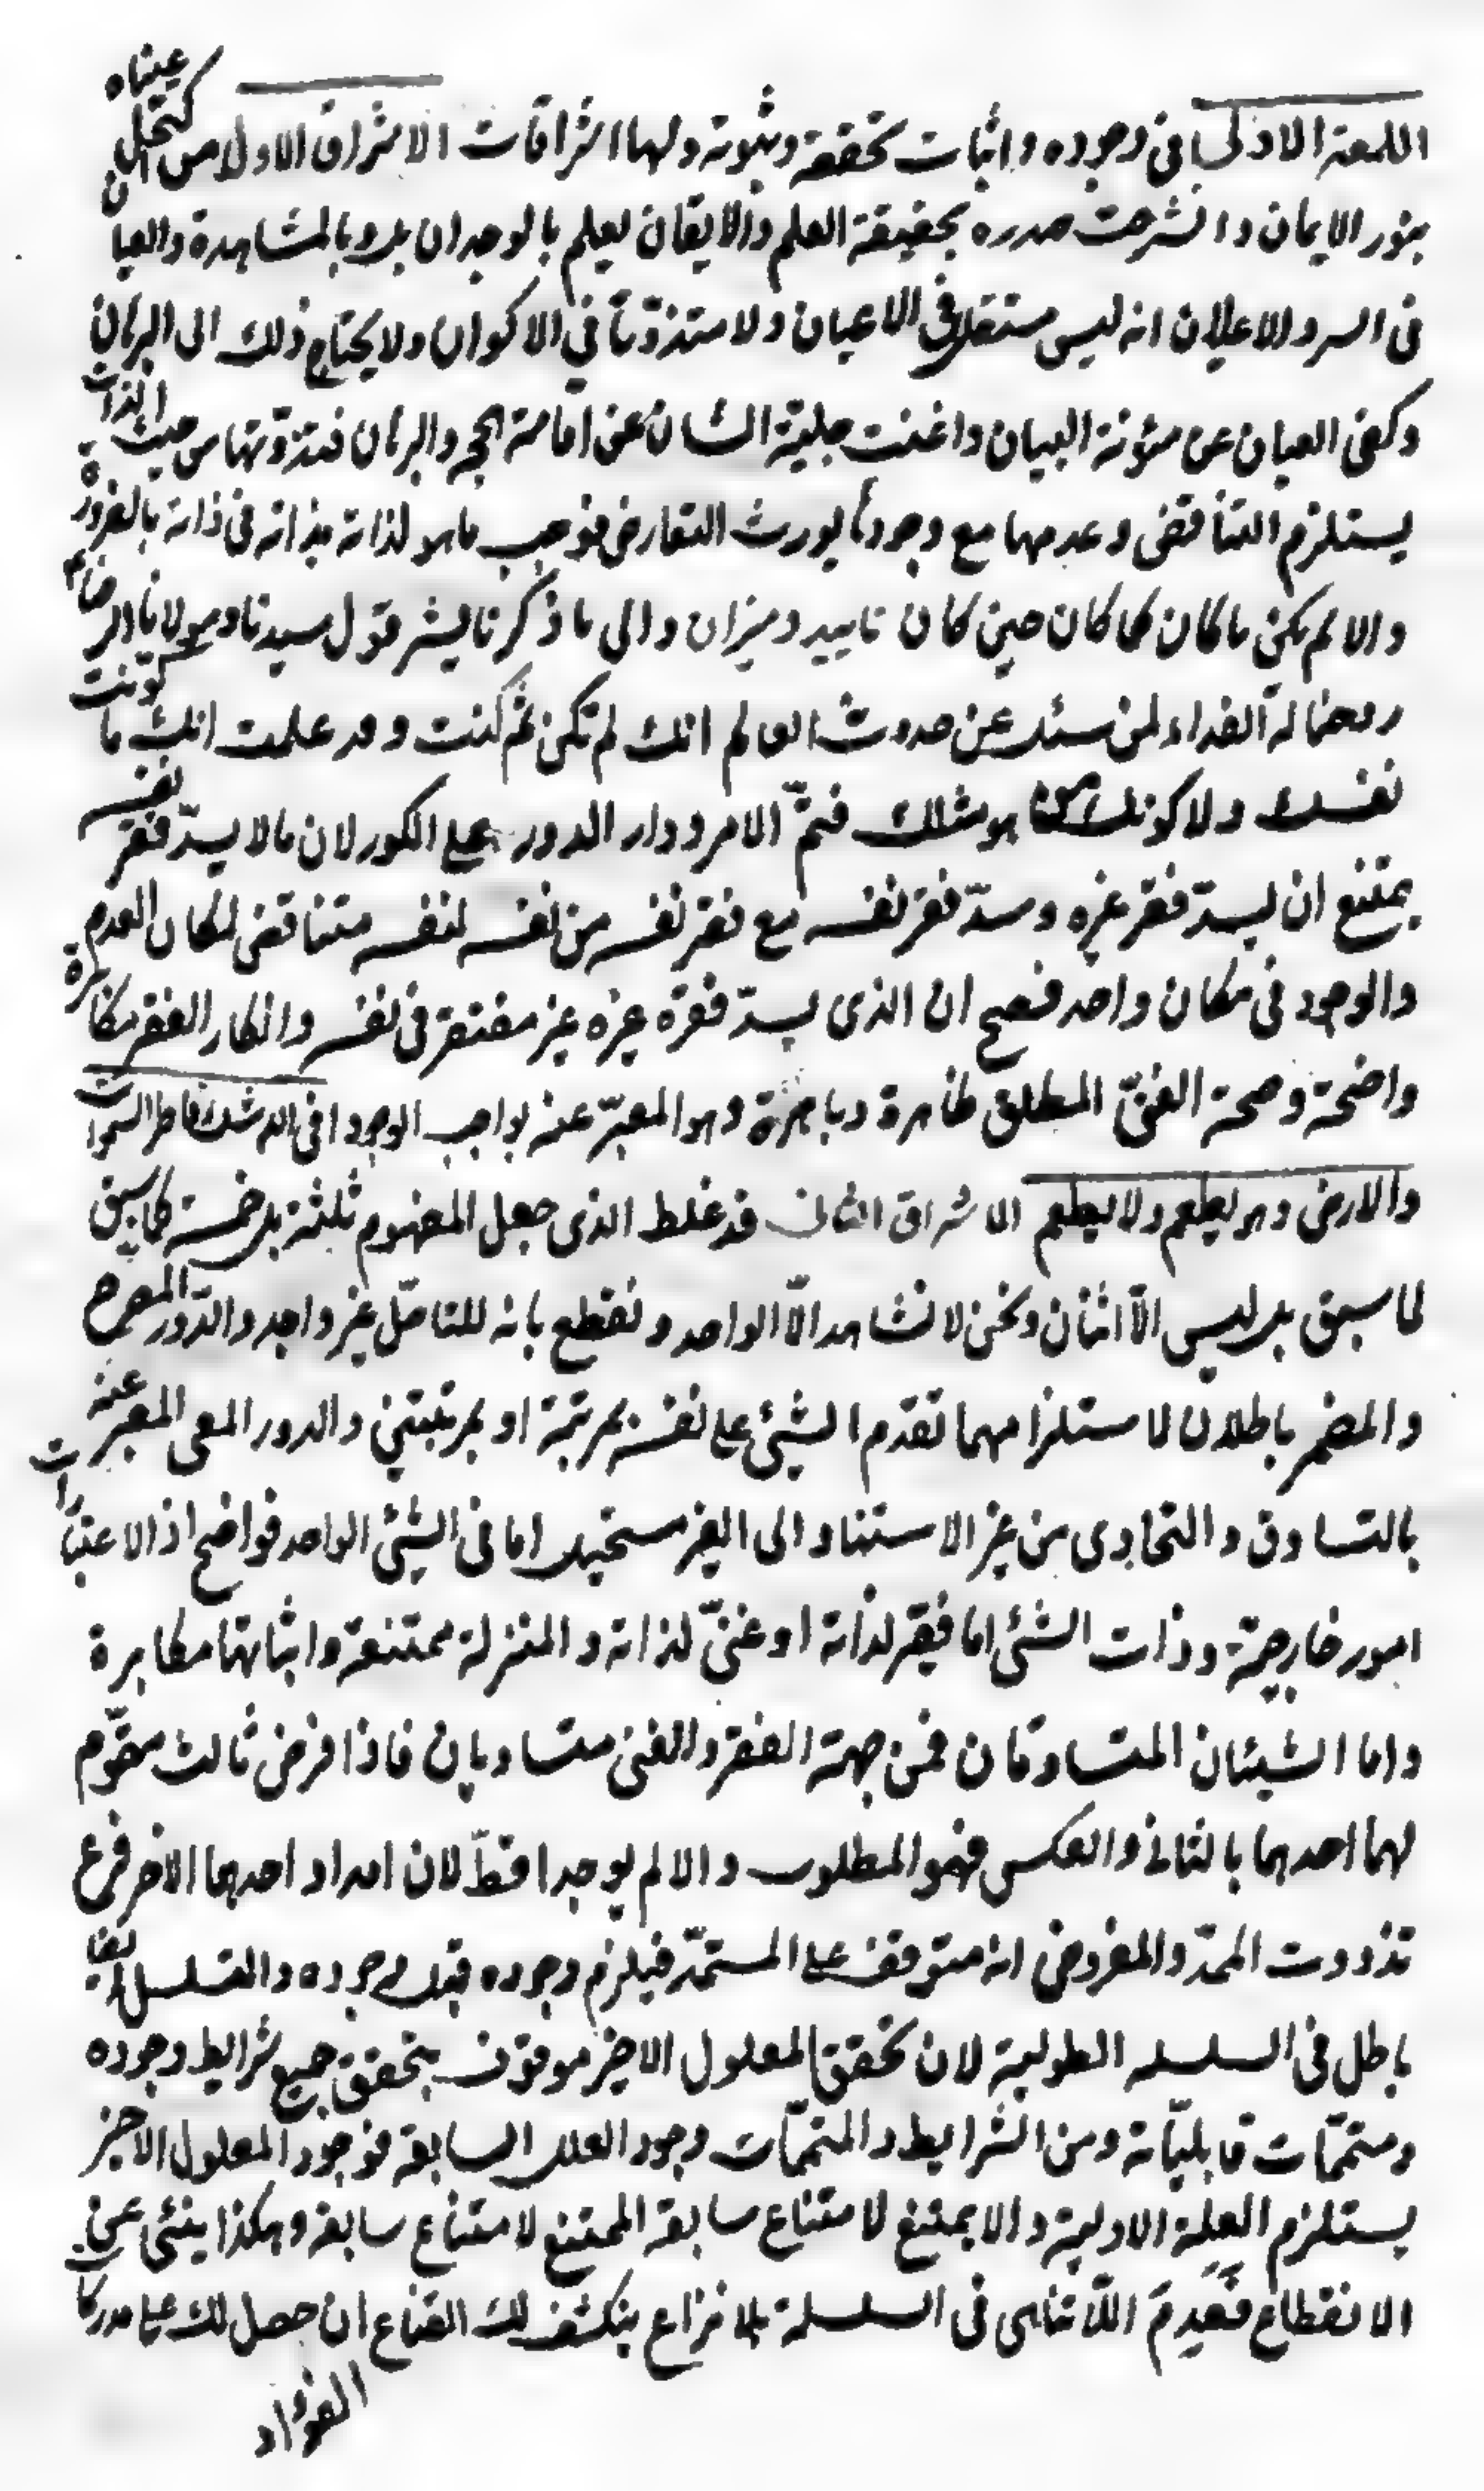 اللمعة الاولى فى وجوده واثبات تحققه وثبوته ولها اشراقات الاشراق الاول من اكتحل عيناه
بنور الايمان وانشرحت صدره بحقيقة العلم والايقان ليعلم بالوجدان بل وبالمشاهدة والعيان
فى السر والاعلان انه ليس مستقلا فى الاعيان ولا متذوّتا فى الاكوان ولا يحتاج ذلك الى البرهان
وكفى العيان عن مؤنة البيان واغنت جلية الشان عن اقامة الحجج والبرهان فتذوّتها من حيث الذات
يستلزم التناقض وعدمها مع وجودها يورث التعارض فوجب ما هو لذاته بذاته فى ذاته بالضرورة
والا لم يكن ما كان كما كان حين كان تاييد وميزان والى ما ذكرنا يشير قول سيدنا ومولانا الرضاء
روحنا له الفداء لمن سئل عن حدوث العالم انك لم تكن ثم كنت وقد علمت انك ما كوّنت
نفسك ولا كونك من هو مثلك فتمّ الامر ودار الدور على الكور لان ما لا يسدّ فقر نفسه
يمتنع ان يسدّ فقر غيره وسدّ فقر نفسه مع فقر نفسه من نفسه لنفسه متناقض لمكان العدم
والوجود فى مكان واحد فصح ان الذى يسدّ فقره غيره غير مفتقر فى نفسه وانكار الفقر مكابرة
واضحة وصحة الغنىّ المطلق ظاهرة وباهرة وهو المعبّر عنه بواجب الوجود افى الله شك فاطر السموات
والارض وهو يطعم ولا يطعم الاشراق الثانى قد غلط الذى جعل المفهوم ثلثة بل خمسة كما سبق
لما سبق بل ليس الّا اثنان ونحن لا نشاهد الّا الواحد ونقطع بانه للتامّل غير واجد والدّور المصرح
والمضمر باطلان لاستلزامهما تقدم الشيئ على نفسه بمرتبة او بمرتبتين والدور المعى المعبر عنه
بالتساوق والتحاوى من غير الاستناد الى الغير مستحيل اما فى الشيئ الواحد فواضح اذ الاعتبارات
امور خارجية وذات الشئ اما فقير لذاته او غنىّ لذاته والمنزلة ممتنعة واثباتها مكابرة
واما الشيئان المتساوقان فمن جهة الفقر والغنى متساويان فاذا فرض ثالث مقوّم
لهما احدهما بالثانى والعكس فهو المطلوب والا لم يوجدا قطّ لان امداد احدهما الاخر فرع
تذووت الممدّ والمفروض انه متوقف على المستمدّ فيلزم وجوده قبل وجوده والتسلسل ايضا
باطل فى السلسله الطولية لان تحقق المعلول الاخير موقوف بتحقق جميع شرايط وجوده
ومتممّات قابليّاته ومن الشرايط والمتممّات وجود العلل السابقة فوجود المعلول الاخير
يستلزم العلة الاولية والا يمتنع لامتناع سابقه الممتنع لامتناع سابقه وهكذا ينبئ عن
الانقطاع فعدم اللّاتناهى فى السلسلة بلا نزاع ينكشف لك القناع ان حصل لك على مدركات
الفؤاد